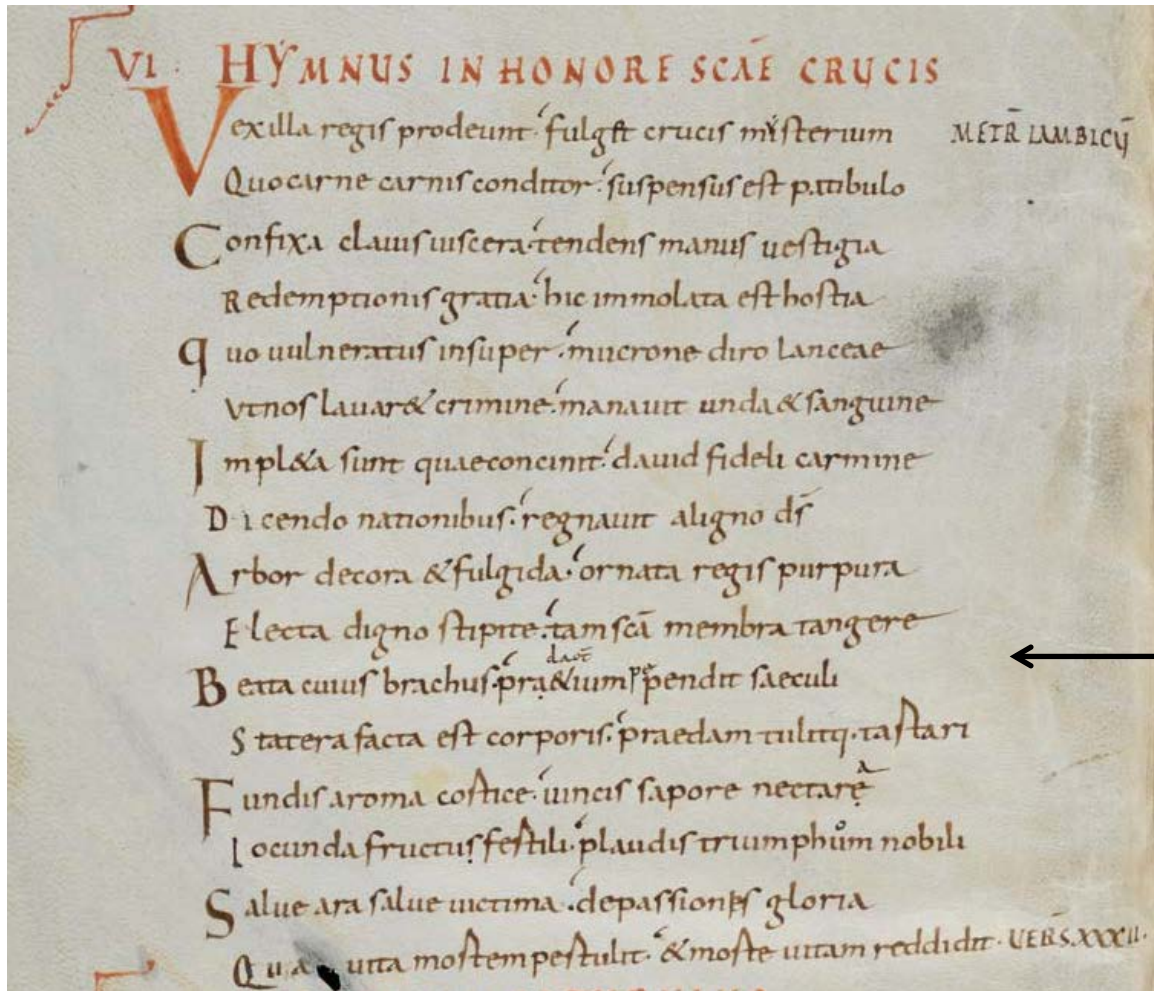 VI · HYMNUS IN HONORE SCAE CRUCIS
Vexilla regis prodeunt· fulg&t crucis mysterium METR IAMBICU
Quo carne carnis conditor· suspensus est patibulo
Confixa clauis uiscera· tendens manus uestigia
Redemptionis gratia· hic immolata est hostia
Quo uulneratus insuper· mucrone diro lanceae
Vt nos lauar& crimine· manauit unda & sanguine
Impl&a sunt quae concinit· dauid fideli carmine
Dicendo nationibus· regnauit a ligno ds
Arbor decora & fulgida· ornata regis purpura
Electa digno stipite· tam scā membra tangere
Beata cuius brachiis· pendit saeculi
Statera facta est corporis· praedam tulitq· tartari
Fundis aroma cortice· uincis sapore nectare
Iocunda fructus fertili· plaudis triumphum nobili
Salue ara salue uictima· de passionis gloria
uita mortem pertulit· & morte uitam reddidit· UERS XXXII·